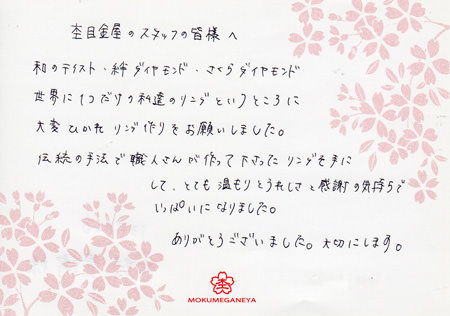 杢目金屋のスタッフの皆様へ
和のテイスト・絆ダイヤモンド・さくらダイヤモンド
世界に1つだけの私達のリングというところに
大変ひかれ リング作りをお願いしました。
伝統の手法で職人さんが作って下さったリングを手に
して、とても温もりとうれしさと感謝の気持ちで
いっぱいになりました。
ありがとうございました。大切にします。
MOKUMEGANEYA